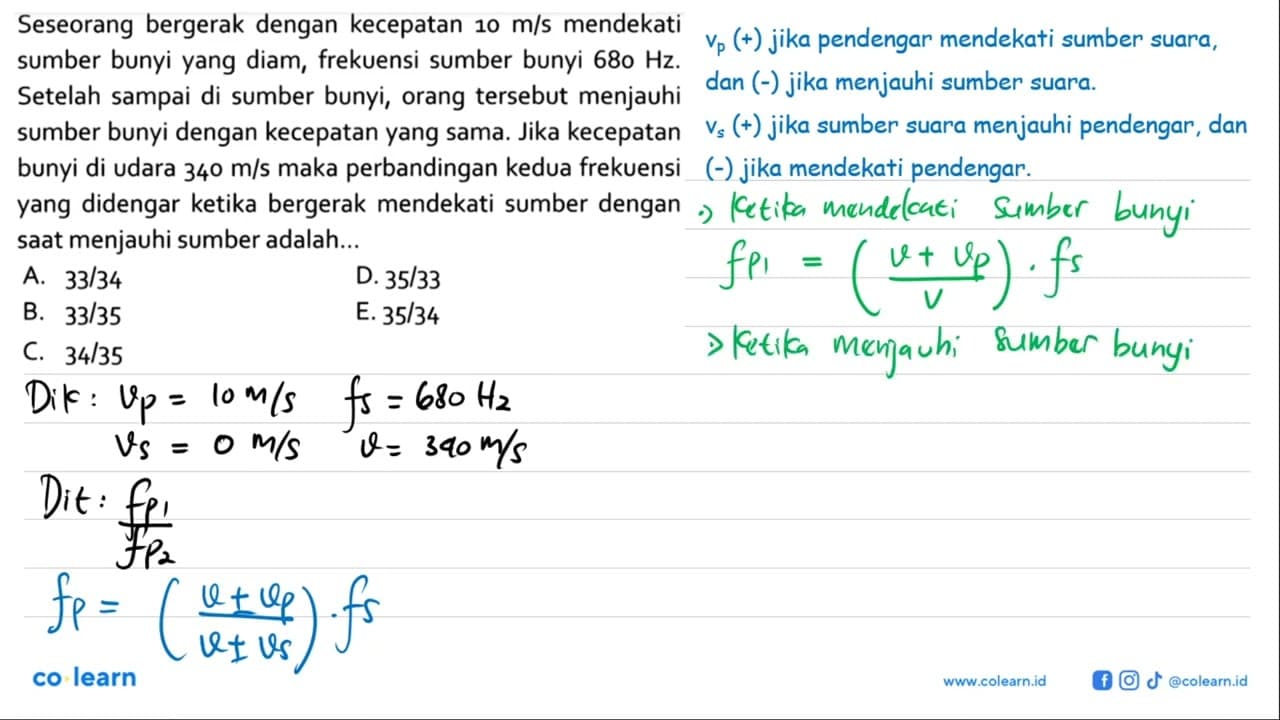 Seseorang bergerak dengan kecepatan 10 m/s mendekati
sumber bunyi yang diam, frekuensi sumber bunyi 680 Hz.
Setelah sampai di sumber bunyi, orang tersebut menjauhi
sumber bunyi dengan kecepatan yang sama. Jika kecepatan
bunyi di udara 340 m/s maka perbandingan kedua frekuensi
yang didengar ketika bergerak mendekati sumber dengan
saat menjauhi sumber adalah...
A. 33/34 D. 35/33
B. 33/35 E. 35/34
C. 34/35
Dik : vp = 10 m/s fs = 680 Hz
vs = 0 m/s v = 340 m/s
Dit : fp1
fp2
fp = (v ± vp / v ± vs) . fs
vp (+) jika pendengar mendekati sumber suara,
dan (-) jika menjauhi sumber suara.
vs (+) jika sumber suara menjauhi pendengar, dan
(-) jika mendekati pendengar.
> Ketika mendekati sumber bunyi
fp1 = (v + vp / v) . fs
> Ketika menjauhi sumber bunyi
co learn
www.colearn.id @colearn.id